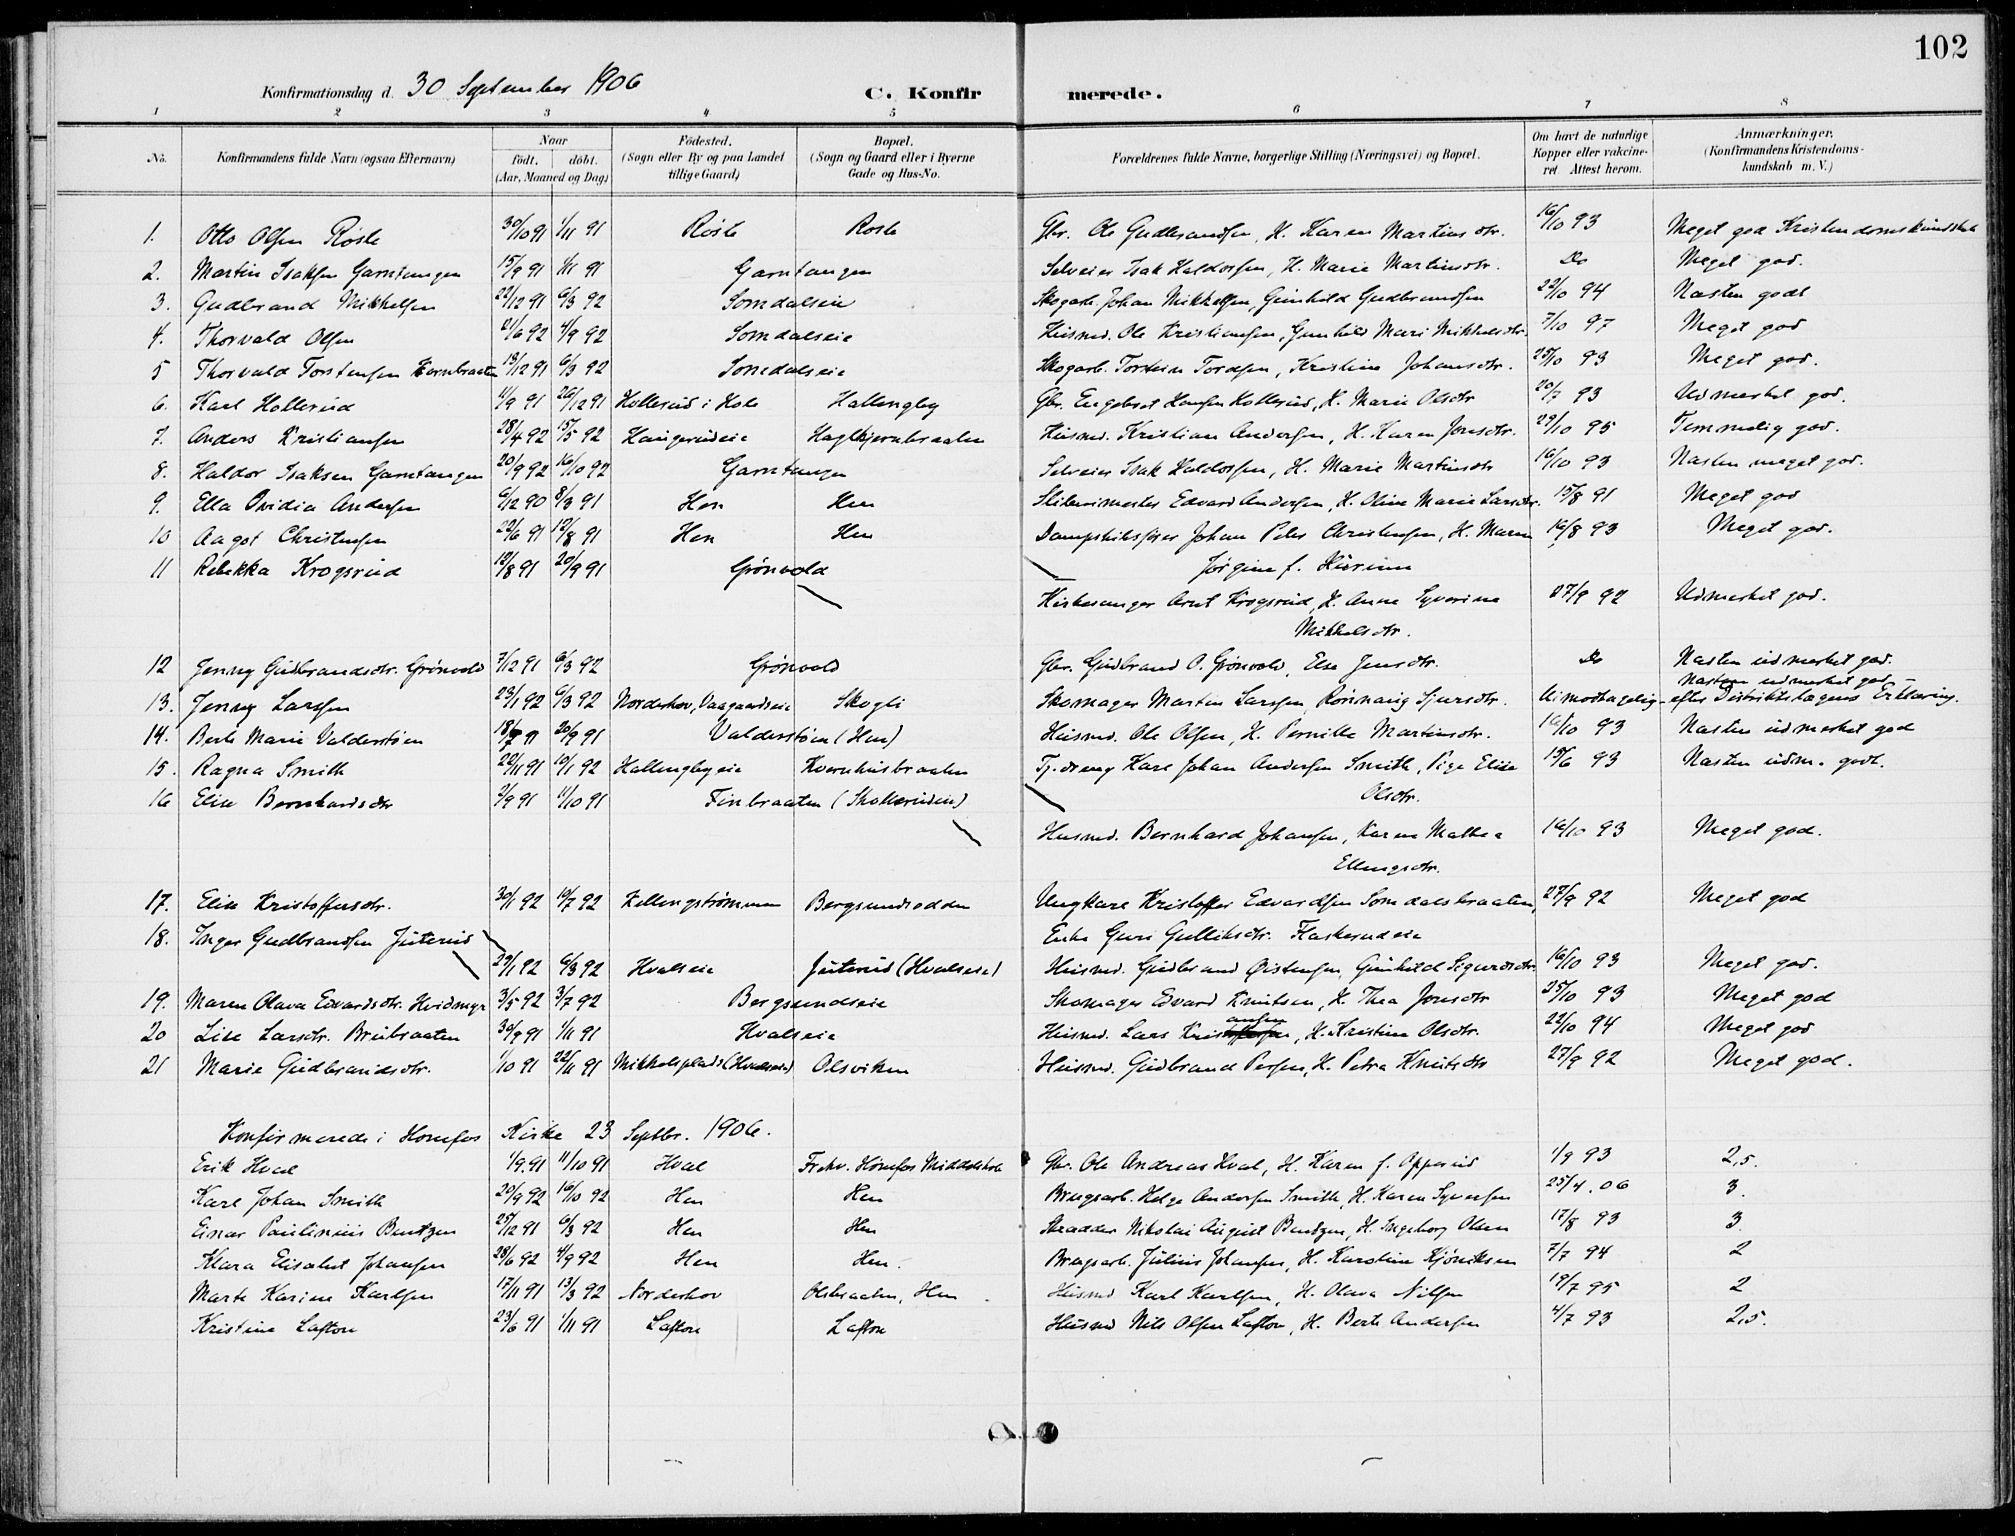 102
Konfirmationsdag d. 30 September 1906 C. Konfirmerede.
1 2 3 4 5 6 7 8
No. Konfirmandens fulde Navn (ogsaa Efternavn) Naar født. døbt. (Aar, Maaned og Dag) Fødested. (Sogn eller By og paa Landet tillige Gaard) Bopæl. (Sogn og Gaard eller i Byerne Gade og Hus-No. Forældrenes fulde Navne, borgerlige Stilling (Næringsvei) og Bopæl. Om havt de naturlige Kopper eller vakcineret Attest herom. Anmærkninger. (Konfirmandens Kristendomskundskab m. V.)
1. Otto Olsen Røsle 30/10 91 1/11 91 Røsle Røsle Gbr. Ole Gudbrandsen, H. Karen Martinsdtr. 16/10 93 Meget god Kristendomskundskab
2. Martin Isaksen Garntangen 15/9 91 1/11 91 Garntangen Selveier Isak Haldorsen, H. Marie Martinsdtr. Do Meget god.
3. Gudbrand Mikkelsen 22/12 91 6/3 92 Somdalseie Skogarb. Johan Mikkelsen, Gunhild Gudbrandsen 22/10 94 Næsten godt
4. Thorvald Olsen 21/6 92 4/9 92 Somdalseie Husmd. Ole Kristiansen, Gunhild Mari Mikkelsdtr. 7/10 97 Meget god
5 Thorvald Torstensen 13/12 91 6/3 92 Somdalseie Skogarb. Torstein Tordsen, Kristine Johansdtr. 25/10 93 Meget god.
6. Karl Hollerud 11/9 91 26/12 91 Hollerud i Hole Hallengby Gbr. Engebret Hansen Hollerud, H. Marie Olsdtr 20/7 93 Udmerket god.
7. Anders Kristiansen 28/4 92 15/5 92 Haugerudeie Hagltjernbraaten Husmd. Kristian Andersen, H. Karen Jonsdtr. 29/10 95 Temmelig god.
8. Haldor Isaksen Garntangen 20/9 92 16/10 92 Garntangen Selveier Isak Haldorsen, H. Marie Martinsdtr 16/10 93 Næsten meget god.
9. Ella Ovidia Andersen 6/12 90 8/3 91 Hen Hen Sliberimester Edvard Andersen, H. Oline Marie Larsdtr. 15/8 91 Meget god
10 Aagot Christensen 22/6 91 12/8 91 Hen Hen Dampskibsfører Johan Peter Christensen, H. Maren 16/8 93 Meget god.
Jørgine f.
11 Rebekka Krogsrud 12/8 91 20/9 91 Grønvold
Kirkesanger Arnt Krogsrud, H. Anne Syverine 27/9 92 Udmerket god.
Mikkelsdtr.
12 Jenny Gudbrandsdtr. Grønvold 7/12 91 6/3 92 Grønvold Gbr. Gudbrand O. Grønvold, Else Jensdtr. Do Næsten udmerket god.
Næsten udmerket god
13. Jenny Larsen 23/1 92 6/3 92 Norderhov, Vaagaardseie Skogli Skomager Martin Larsen, Rønnaug Sjursdtr. Uimodtagelig efter Distriktslægens Erklæring.
14. Berte Marie Valderstøen 18/7 91 20/9 91 Valderstøen (Hen) Husmd. Ole Olsen, H. Pernille Martinsdtr. 16/10 93 Næsten udmerket god
15. Ragna Smith 22/11 91 10/1 92 Hallengbyeie Kvernhusbraaten Tj.dreng Karl Johan Andersen Smith, Pige Elise 15/6 93 Næsten udm. godt.
Olsdtr.
16 Elise Bernhardsdtr 2/9 91 11/10 91 Finbraaten (Skollerudeie)
Husmd. Bernhard Johansen, Karen Mathea 16/10 93 Meget god.
Ellingsdtr.
17. Elise Kristoffersdtr. 30/1 92 10/7 92 Kellingstrømmen Bergsundsodden Ungkarl Kristoffer Edvardsen Somdalsbraaten, 27/9 92 Meget god
Enke Guri Gulliksdtr. Flaskerudeie
18. Inger Gudbrandsen Juterud
29/1 92 6/3 92 Hvalseie Juterud (Hvalseie) Husmd. Gudbrand Øistensen, Gunhild Sigurdsdtr. 16/10 93 Meget god.
19. Maren Olava Edvardsdtr. Hvidmyr 3/5 92 3/7 92 Bergsundseie Skomager Edvard Knutsen, H. Thea Jonsdtr 25/10 93 Meget god
20 Lise Larsdtr. Brubraaten 30/9 91 1/11 91 Hvalseie Husmd. Lars Kristiansen, H. Kristine Olsdtr. 22/10 94 Meget god
21 Marie Gudbrandsdtr. 1/10 91 22/11 91 Mikkelsplads (Hvalseie) Olsviken Husmd. Gudbrand Persen, H. Petra Knutsdtr 27/9 92 Meget god.
Konfirmerede i Hønefos Kirke 23 Septbr. 1906.
Erik Hval 1/9.91 11/10 91 Hval Frekv. Hønefos Middelskole Gbr. Ole Andreas Hval, H. Karen f. Opperud 1/9 93 2,5.
Karl Johan Smith 20/9 92 16/10 92 Hen Hen Brugsarb. Helge Andersen Smith, H. Karen Syversen 25/4.06 3.
Einar Paulinius Bentzen 25/12 91 6/3 92 Hen Hen Skrædder Nikolai August Bentzen, H. Ingeborg Olsen 17/8 93 3.
Klara Elisabet Johansen 28/6 92 4/9 92 Hen Hen. Brugsarb. Julius Johansen, H. Karoline Kjøniksen 7/7 94 2
Marte Karine Karlsen 17/11 91 13/3 92 Norderhov Olsbraaten, Hen Husmd Karl Karlsen, H. Olava Nilsen 19/7 95 2
Kristine Lafton 23/6 91 1/11 91 Lafton Lafton Husmd Nils Olsen Lafton, H. Berte Andersen 4/7 93 2,5.